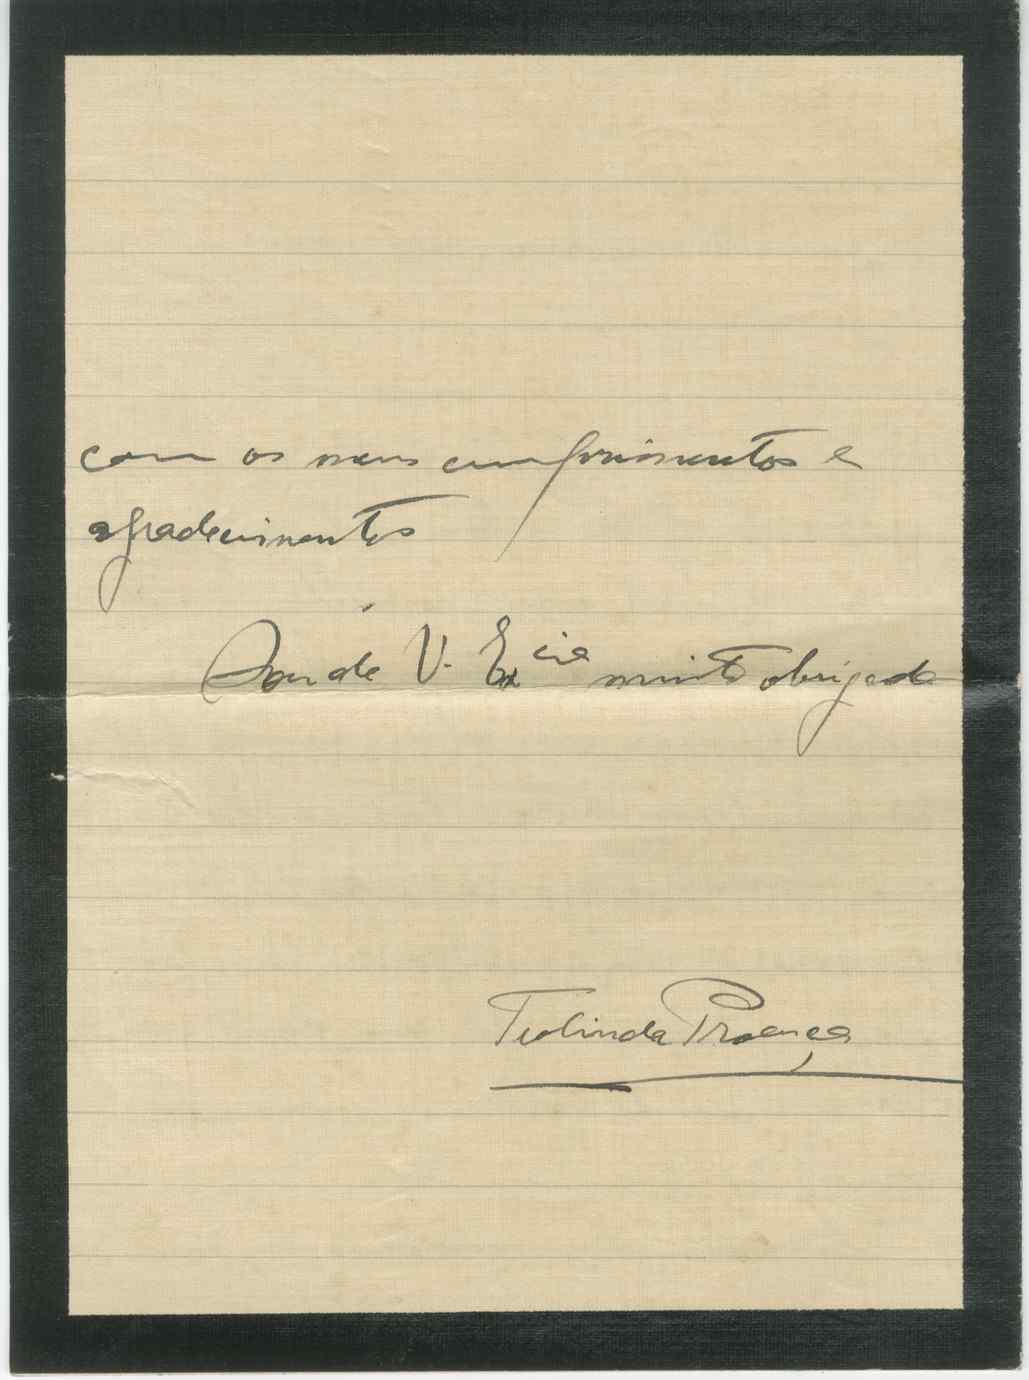 com os meus cumprimentos e
agradecimentos
Sou de V. Ex.cia muito obrigada
Teolinda Proença